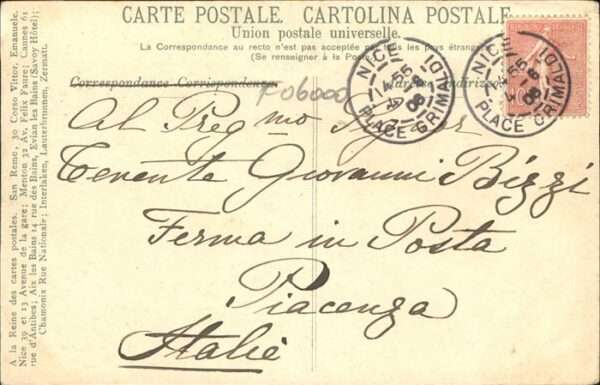 CARTE POSTALE. CARTOLINA POSTALE
Union postale universelle.
La Correspondance au recto n'est pas acceptée par tous les pays étrangers
(Se renseigner à la Poste.)
Correspondance-Corrispondenza
Indirizzo
F06000
NICE
PLACE GRIMALDI
NICE
PLACE GRIMALDI
Al Preg mo Signor
Tenente Giovanni Bizzi
Ferma in Posta
Piacenza
Italie
A la Reine des cartes postales. San Remo, 30 Corso Vittor. Emanuele.
Nice 39 et 13 Avenue de la gare; Menton 32 Av. Felix Faure; Cannes 61
rue d'Antibes; Aix les Bains 14 rue des Bains, Evian les Bains (Savoy Hôtel);
Chamonix Rue Nationale; Interlaken, Lauterbrunnen, Zermatt.